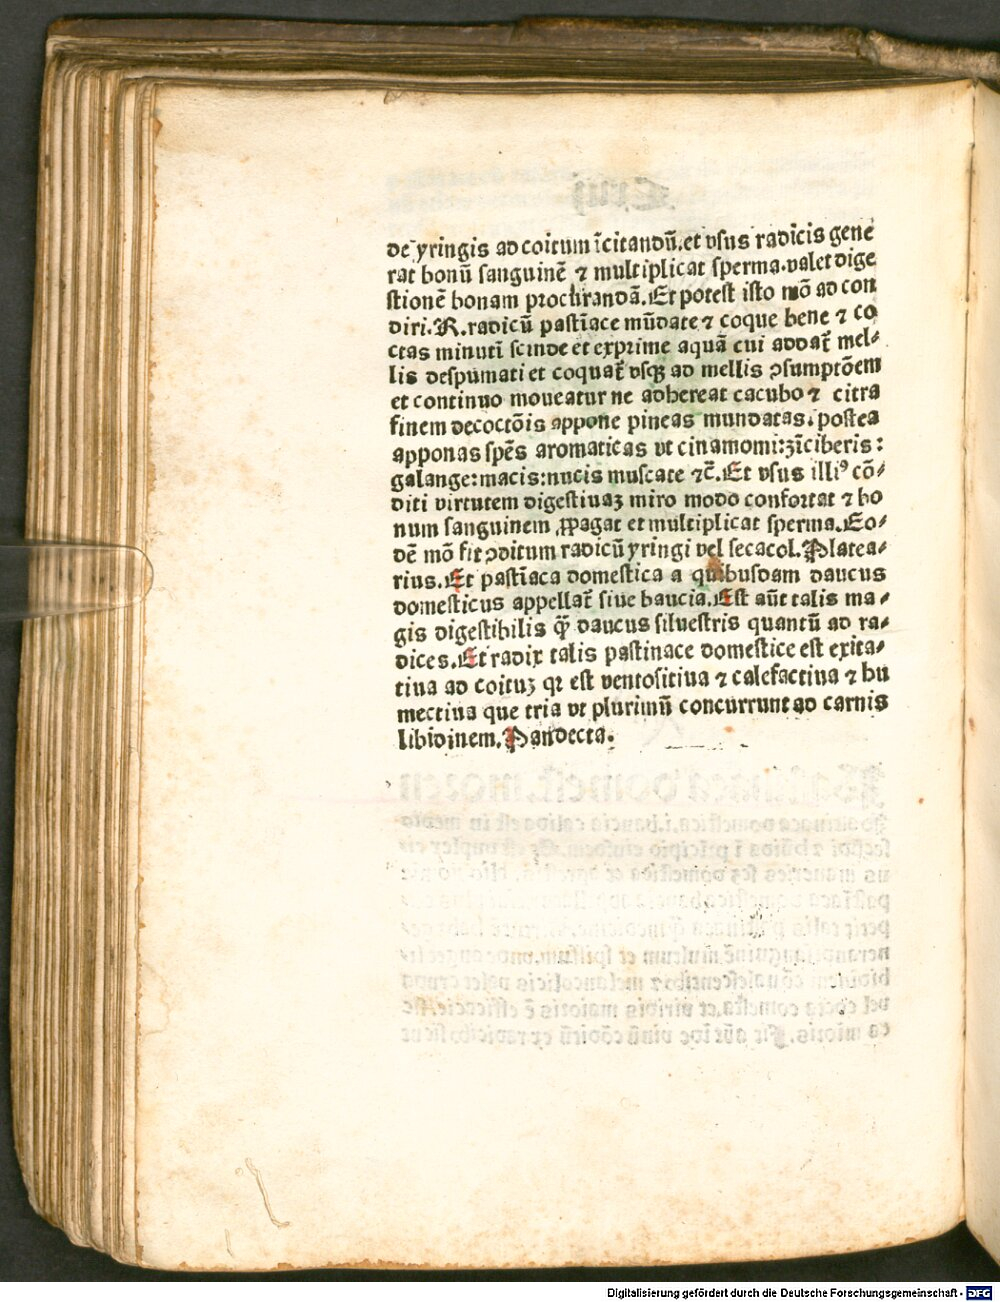 de yringis ad coitum īcitandū.et vsus radicis gene
rat bonū sanguinē ⁊ multiplicat sperma.valet dige
stionē bonam procurandā.Et potest isto mō ad con
diri.R.radicū pastīace mūdate ⁊ coque bene ⁊ co
ctas minutī scinde et exprime aquā cui addat̄ mel⸗
lis despumati et coquat̄ vsqꝫ ad mellis ꝯsumptōem
et continuo moueatur ne adhereat cacubo ⁊ citra
finem decoctōis appone pineas mundatas.postea
apponas spēs aromaticas vt cinamomi:zīciberis:
galange:macis:nucis muscate ⁊c̄.Et vsus illiꝰ cō⸗
diti virtutem digestiuaꝫ miro modo confortat ⁊ bo
num sanguinem ꝓpagat et multiplicat sperma.Eo⸗
dē mō fit ꝯditum radicū yringi vel secacol.Platea⸗
rius.Et pastīaca domestica a quibusdam daucus
domesticus appellat̄ siue baucia.Est aūt talis ma⸗
gis digestibilis q̄ꝫ daucus siluestris quantū ad ra⸗
dices.Et radix talis pastinace domestice est exita⸗
tiua ad coituꝫ qꝛ est ventositiua ⁊ calefactiua ⁊ hu
mectiua que tria vt plurimū concurrunt ad carnis
libidinem.Pandecta.
Digitalisierung gefördert durch die Deutsche Forschungsgemeinschaft - DFG